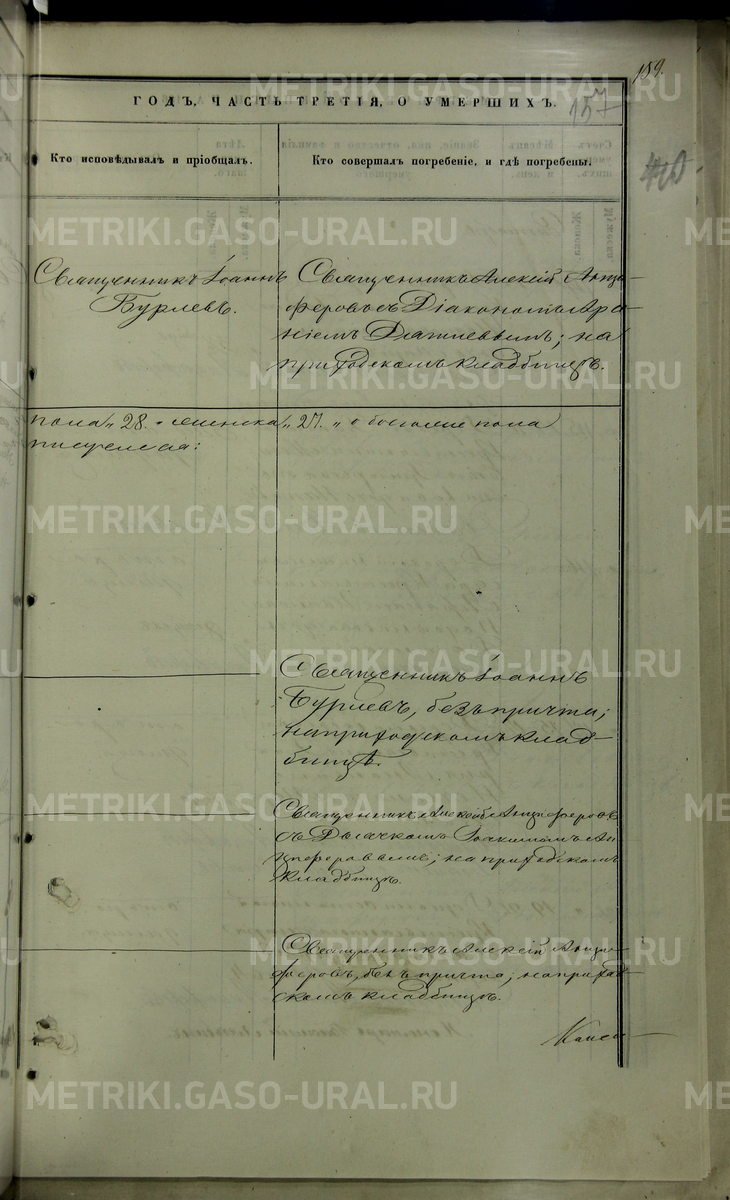 159.
ГОДЪ, ЧАСТЬ ТРЕТІЯ, О УМЕРШИХЪ.
157
Кто исповѣдывалъ и пріобщалъ.
Кто совершалъ погребеніе, и гдѣ погребены.
410
Священникъ Іоаннъ
Бурлевъ.
Священникъ Алексій Анци-
феровъ съ Діакономъ
на
приходскомъ кладбищѣ.
пола „ 28. женска „ 27. „ обоего пола
Священникъ Іоаннъ
Бурлевъ, безъ причта;
на приходскомъ клад-
бищѣ.
Священникъ Алексій Анциферовъ
съ Дьячкомъ Іоакимомъ Ан-
циферовымъ; на приходскомъ
кладбищѣ.
Священникъ Алексій Анци-
феровъ, безъ причта; на приход-
скомъ кладбищѣ.
METRIKI.GASO-URAL.RU